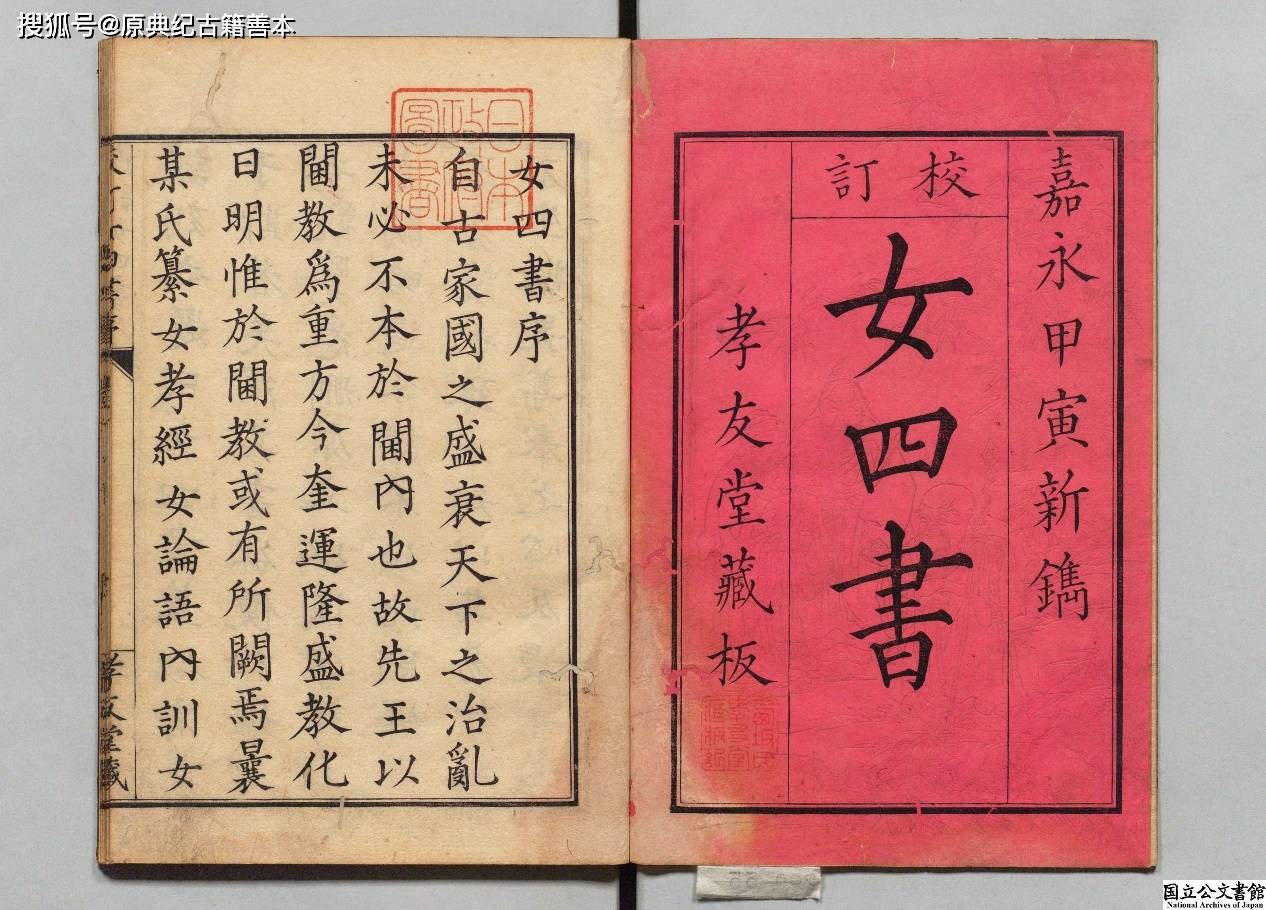 搜狐号@原典纪古籍善本
嘉永甲寅新鐫
校訂
女四書
孝友堂藏板
女四書序
自古家國之盛衰天下之治亂
未必不本於閫內也故先王以
閫教爲重方今奎運隆盛教化
日明惟於閫教或有所闕焉曩
某氏纂女孝經女論語內訓女
孝友堂藏
日本政府圖書
国立公文書館
National Archives of Japan